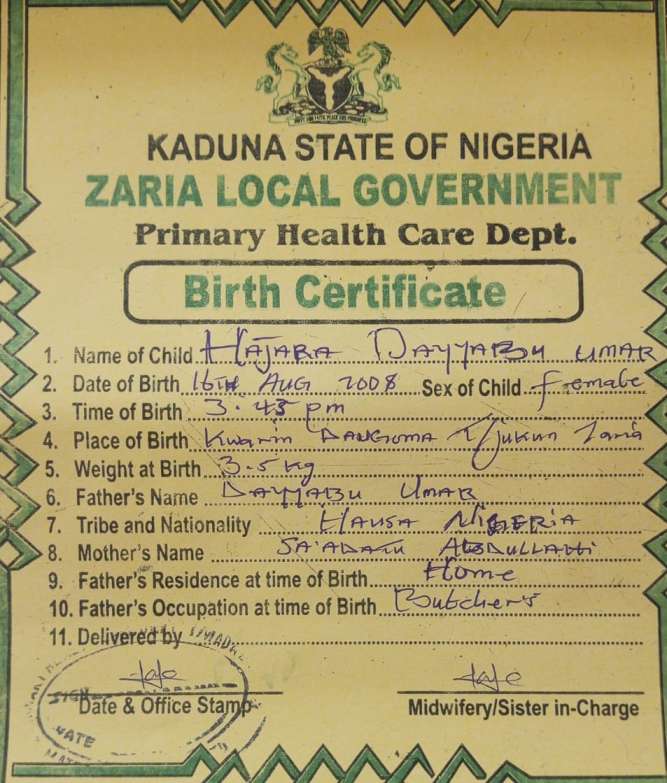 KADUNA STATE OF NIGERIA
ZARIA LOCAL GOVERNMENT
Primary Health Care Dept.
Birth Certificate
1. Name of Child HAJARA DAYYABU UMAR
2. Date of Birth 16TH AUG 2008 Sex of Child female
3. Time of Birth 3.45 pm
4. Place of Birth Kwarin DANGOMA T/Jukun Zaria
5. Weight at Birth 3.5 kg
6. Father's Name DAYYABU UMAR
7. Tribe and Nationality HAUSA NIGERIA
8. Mother's Name SA'ADATU ABDULLAHI
9. Father's Residence at time of Birth Home
10. Father's Occupation at time of Birth Butchers
11. Delivered by
SIGN
Date & Office Stamp Midwifery/Sister in-Charge
DATE